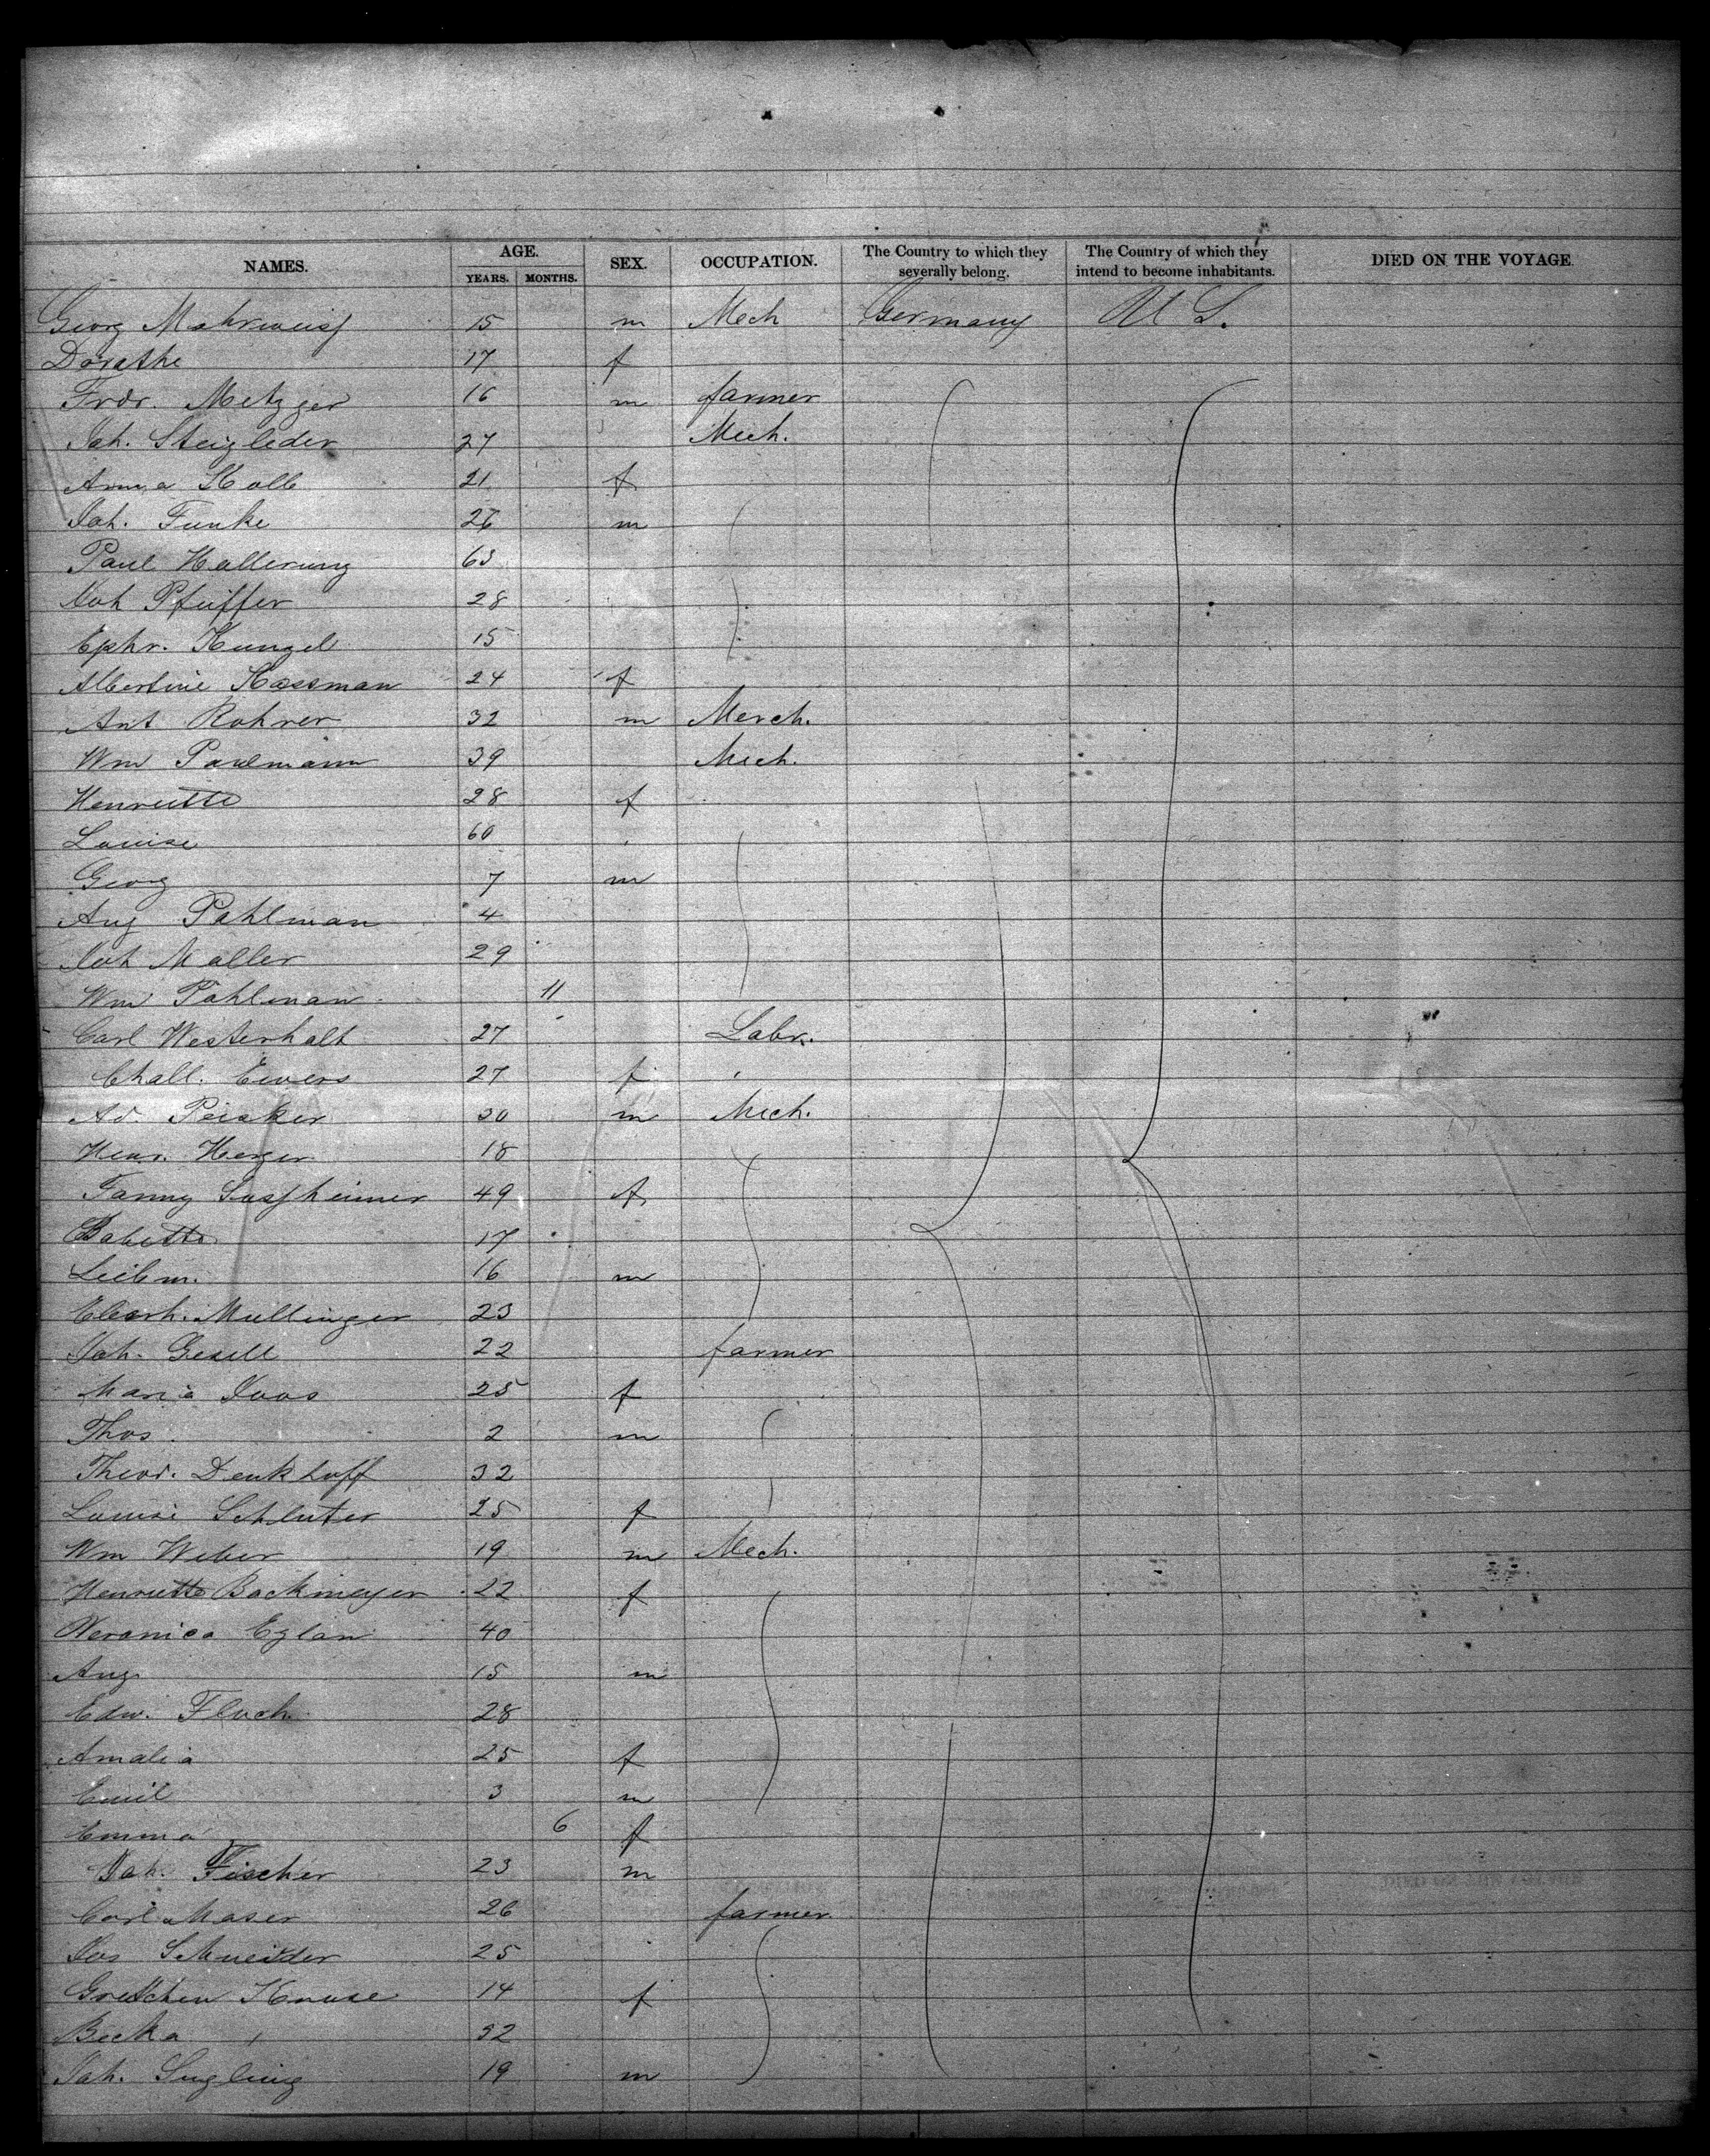 NAMES. AGE. SEX. OCCUPATION. The Country to which they severally belong. The Country of which they intend to become inhabitants. DIED ON THE VOYAGE.
YEARS. MONTHS.
Georg Mahrweiss 15 m Mech Germany U S.
Dorathe 17 f
Frdr. Metzger 16 m farmer
Joh. Steigleder 27 Mech.
Anna Kolb 21 f
Joh. Funke 26 m
Paul Hallerung 63
Joh Pfeiffer 28
Ephr. Kungel 15
Albertine Kassman 24 f
Ant Rohrer 32 m Merch.
Wm Paulmann 39 Mech.
Henriette 28 f
Louise 60
Georg 7 m
Aug Pahlman 4
Joh Maller 29
Wm Pahlman 11
Carl Westerhalt 27 Labr.
Chall. Ewers 27 f
Ad. Peisker 30 m Mech.
Henr. Herger 18
Fanny Sussheimer 49 f
Babette 17
Leibm. 16 m
Eberh. Mullinger 23
Joh. Gesell 22 farmer
Maria Joos 25 f
Thos. 2 m
Theod. Denkhoff 32
Louise Schluter 25 f
Wm Weber 19 m Mech.
Henriette Backmeyer 22 f
Veronica Eglan 40
Aug. 15 m
Edw. Fluch 28
Amalia 25 f
Emil 3 m
Emma 6 f
Joh. Fischer 23 m
Carl Maser 26 farmer
Jos Schneider 25
Gretchen Kruse 14 f
Becka 32
Joh. Sugling 19 m